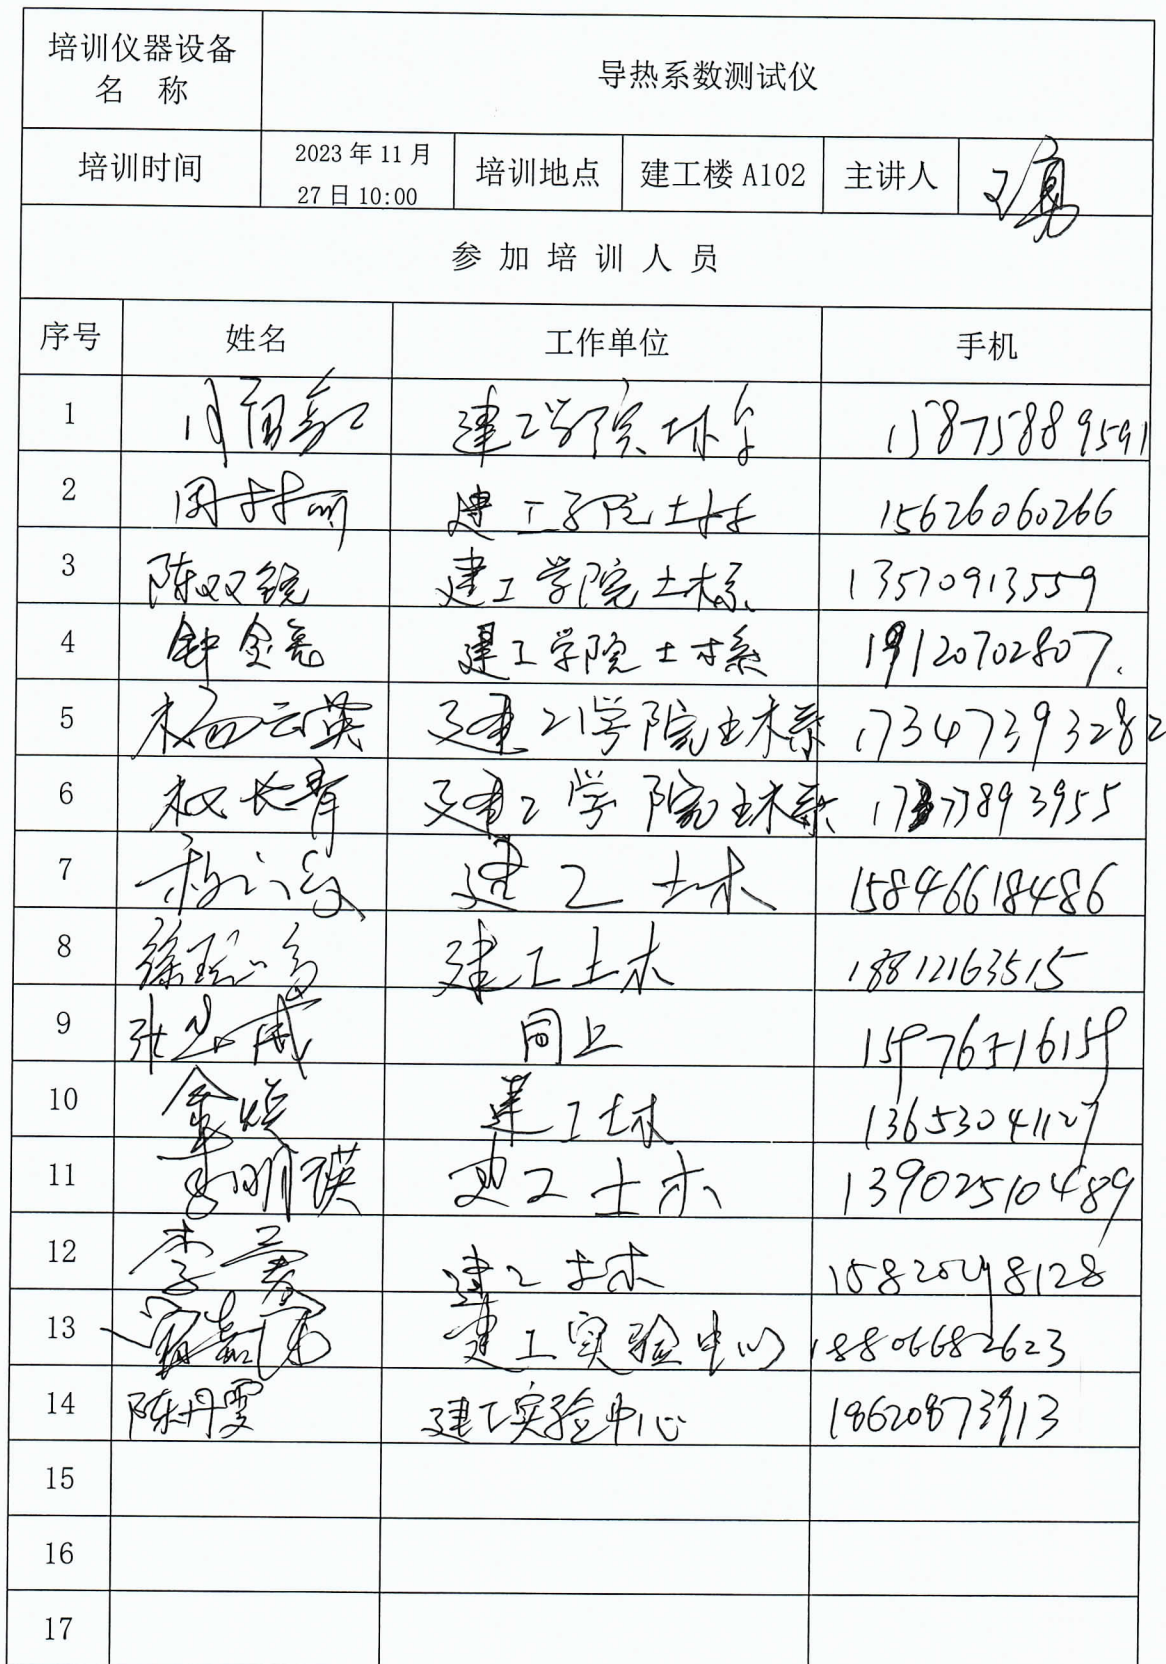 培训仪器设备
名 称
导热系数测试仪
培训时间
2023年11月
27日10:00
培训地点
建工楼A102
主讲人
参加培训人员
序号 姓名 工作单位 手机
1 建工学院土木系 15875889591
2 建工学院土木系 15626060266
3 陈双锐 建工学院土木系 13570913559
4 钟金亮 建工学院土木系 19120702807.
5 杨云英 建工学院土木系 17347393282
6 权长青 建工学院土木系 17377893955
7 建工 土木 15846618486
8 建工土木 18812163515
9 同上 15976516159
10 金焕 建工土木 13653041127
11 李明瑛 建工土木 13902510489
12 建工土木
13 建工实验中心 18806682623
14 陈丹雯 建工实验中心 18620873913
15
16
17